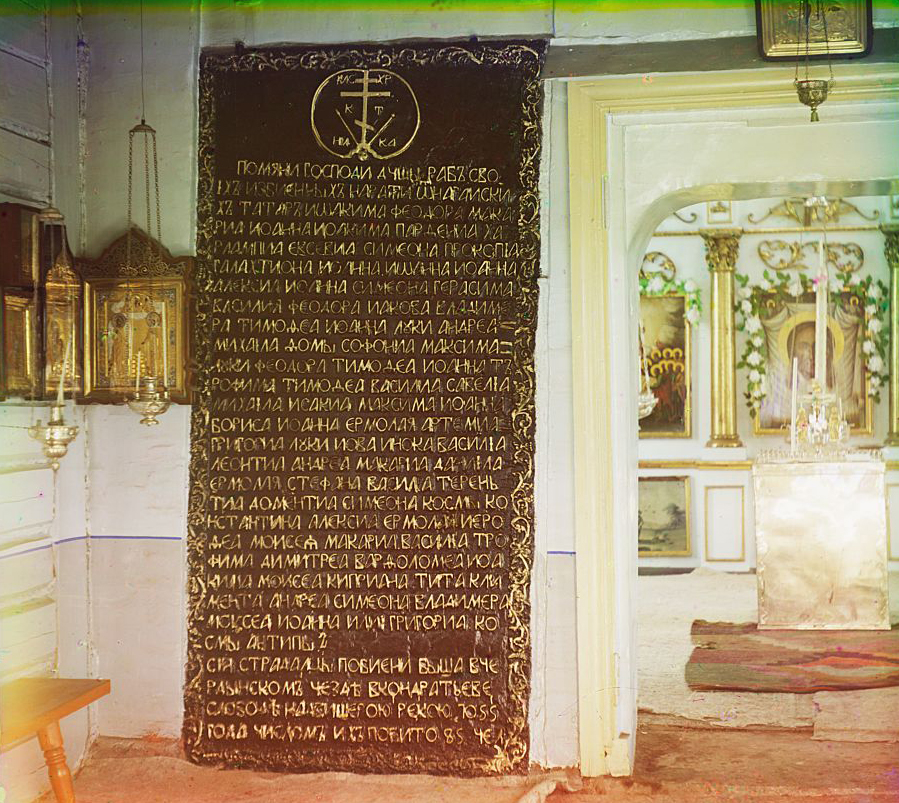 ІИС ХР
К Т
НИ КА
ПОМЯНИ ГОСПОДИ ДУШЫ РАБЪ СВО
ИХЪ ИЗБИЕННЫХЪ НАРАТИ
ХЪ ТАТАРЪ ИѠАКИМА ФЕОДОРА МАКА
РИА ІОАННА ІОАКИМА ПАРѲЕНИА ХА
РЛАМПИА ЕѴСЕВИА СИМЕОНА ПРОКОПІА
ІОАННА ІОАННА
АЛЕКСИА ІОАННА СИМЕОНА ГЕРАСИМА
ВАСИЛИЯ ФЕОДОРА ИАКОВА ВЛАДИМЕ
РА ТИМОѲЕА ИОАННА ЛУКИ АНДРЕА
МИХАИЛА ДОМЫ СОФОНИА МАКСИМА
ЛУКИ ФЕОДОРА ТИМОѲЕА ИОАННА ТЪ
РОФИМЫ ТИМОѲЕА ВАСИЛИА САВЕЛІА
МИХАИЛА ИСАКИА МАКСИМА ИОАННА
БОРИСА ИОАННА ЕРМОЛАЯ АРТЕМИА
ГРИГОРИА ЛУКИ ИОВА ИНОКА ВАСИЛІА
ЛЕОНТИА АНДРЕА МАКАРИА ДАНИИЛА
ЕРМОЛИЯ СТЕФАНА ВАСИЛИА ТЕРЕНЬ
ТИА ДОМЕНТИА СИМЕОНА КОСМЫ КО
НСТАНТИНА АЛЕКСИА ЕРМОЛЫ ИЕРО
ѲЕА МОИСЕѦ МАКАРИА ВАСИЛИА ТРО
ФИМА ДИМИТРЕА ВАРѲОЛОМЕА ИОА
КИМА МОИСЕА КИПРИАНА ТИТА КЛИ
МЕНТА АНДРЕА СИМЕОНА ВЛАДИМЕРА
МОИСЕА ИОАННА И ГРИГОРИА КО
СМЫ АНТИПЫ
СИИ СТРАДАЛЦЫ ПОБИЕНИ БЫША ВЧЕ
РДЫНСКОМЪ УЕЗДѢ ВКОНДРАТЬЕВЕ
СЛОБОДѢ НАДВИШЕРОЮ РЕКОЮ 7055
ГОДА ЧИСЛОМЪ ИХЪ ПОБИТО 85 ЧЕЛ